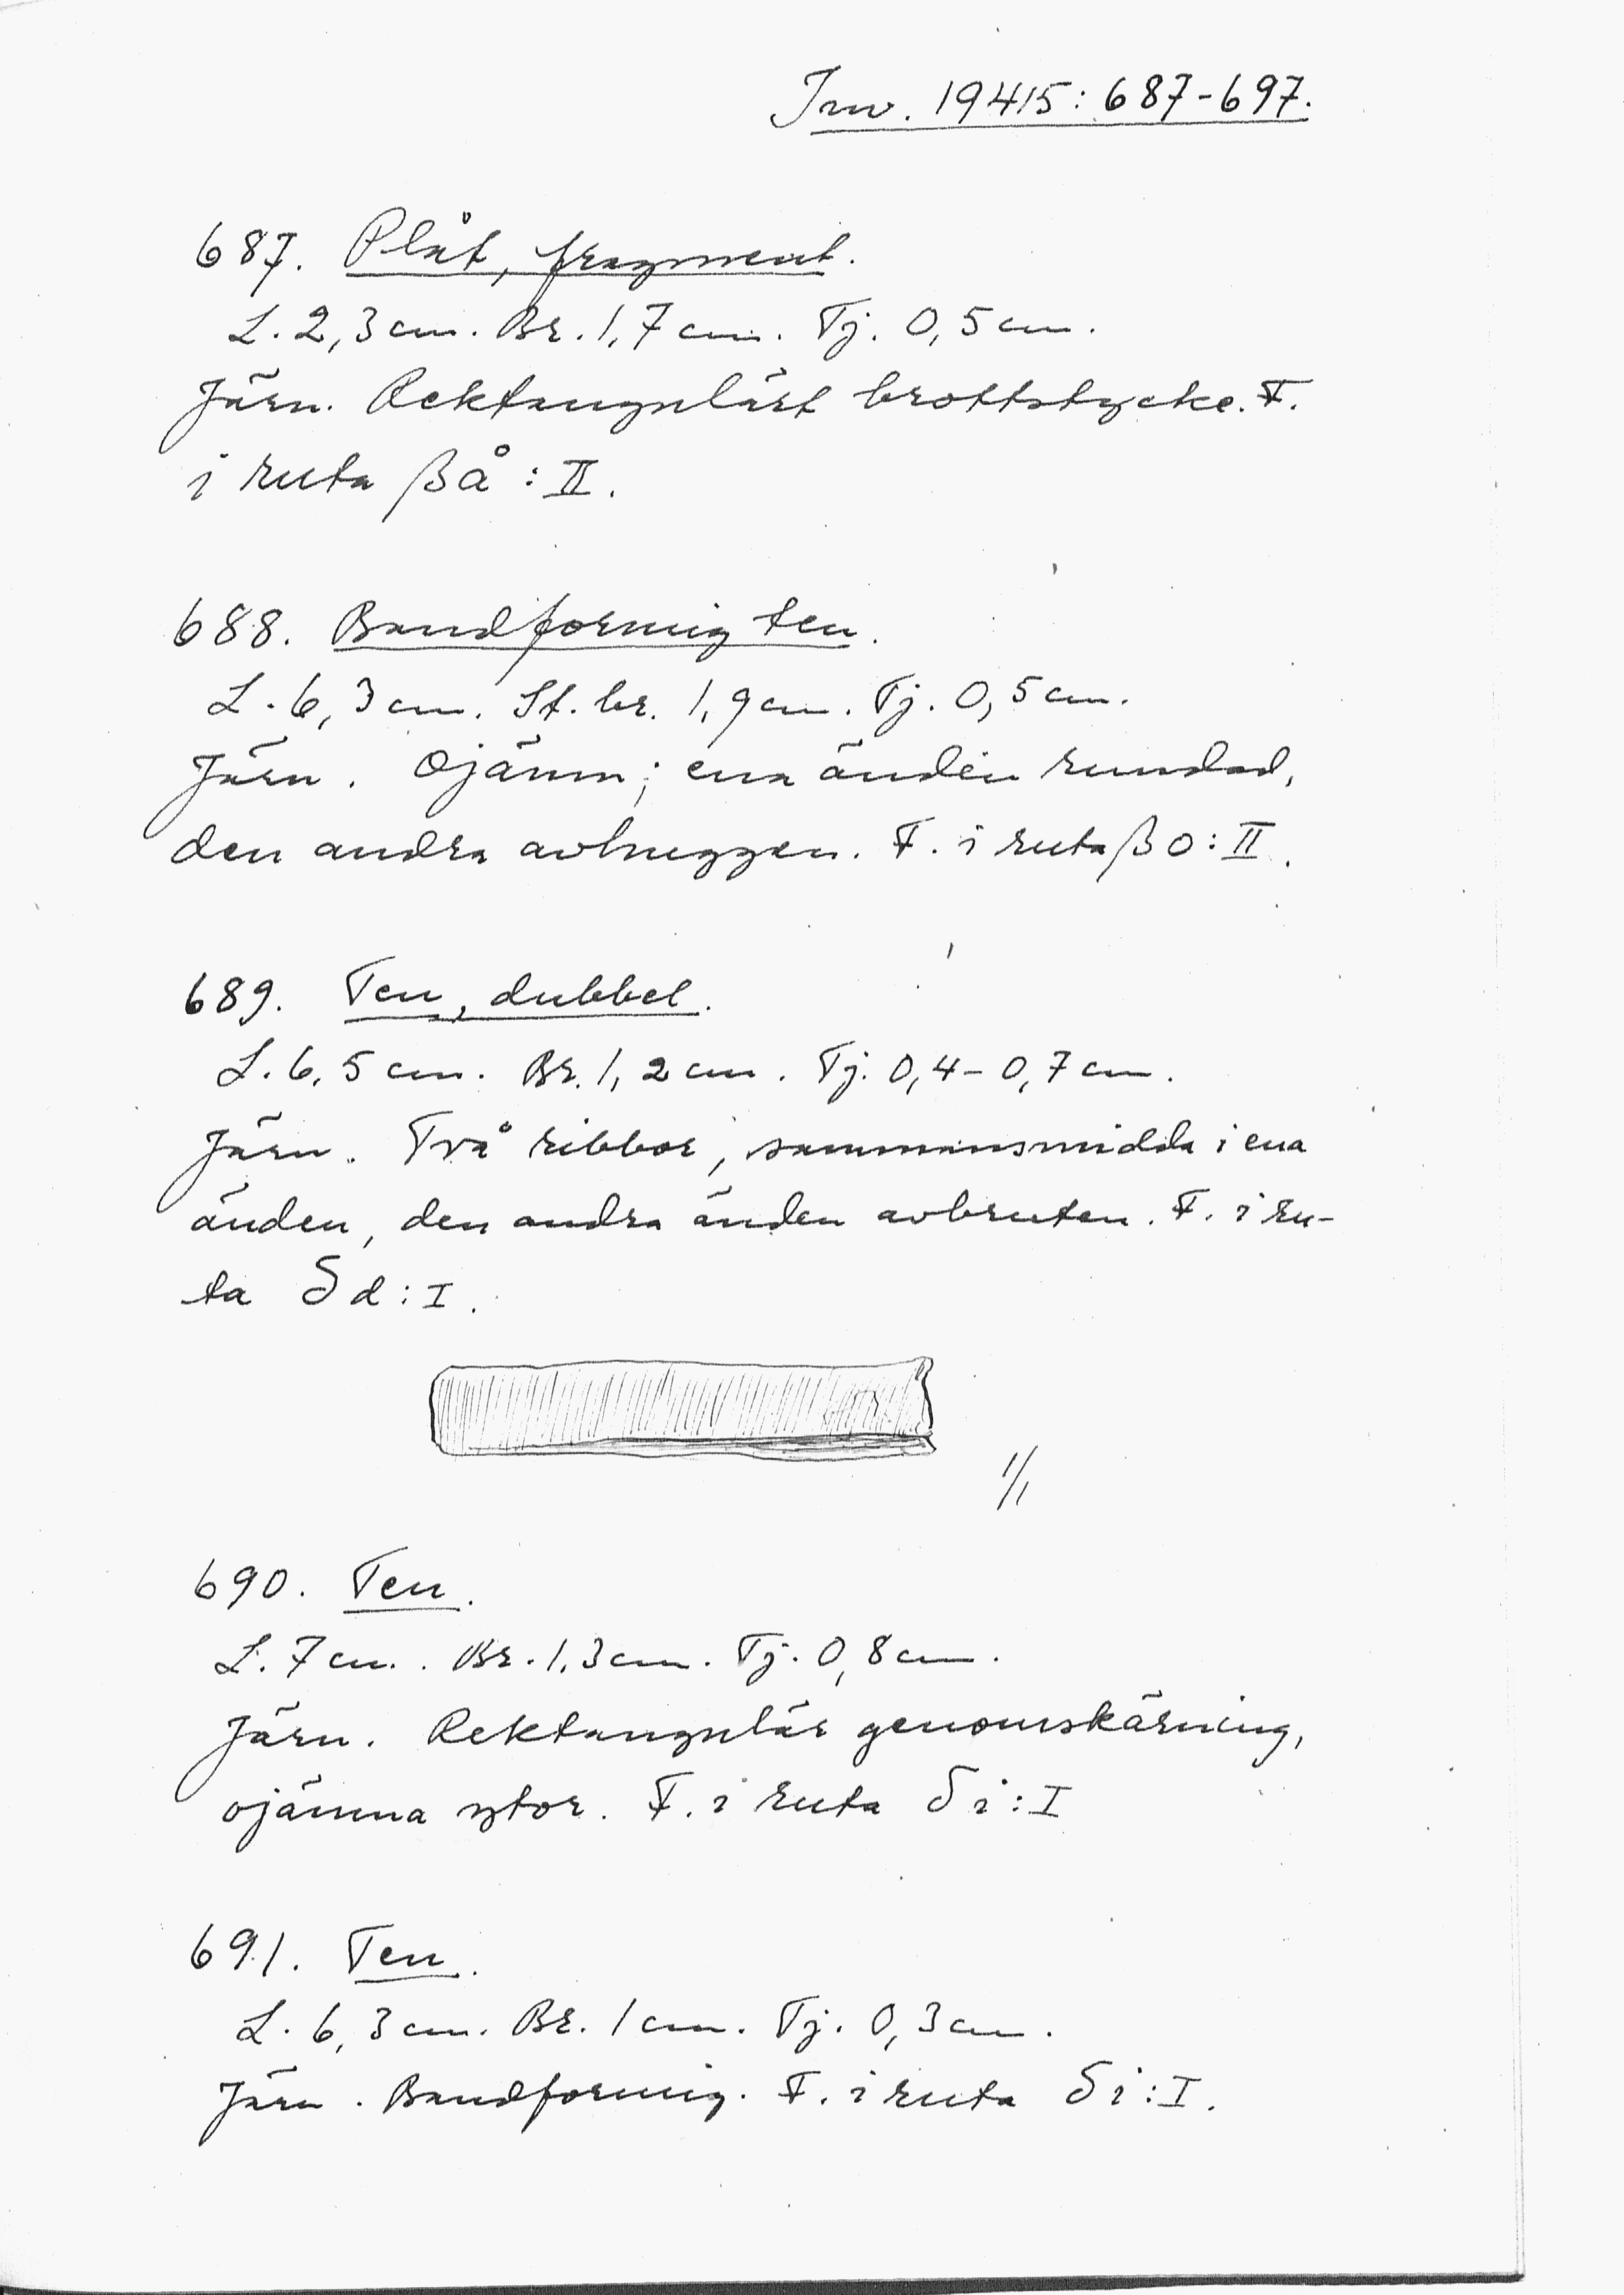 Inv. 19415:687-697.
687. Plåt, fragment.
L. 2,3 cm. Br. 1,7 cm. Tj. 0,5 cm.
Järn. Rektangulärt brottstycke. F.
i ruta βå:II.
688. Bandformig ten.
L. 6,3 cm. St. br. 1,9 cm. Tj. 0,5 cm.
Järn. Ojämn; ena änden rundad,
den andra avhuggen. F. i ruta βo:II.
689. Ten, dubbel.
L. 6,5 cm. Br. 1,2 cm. Tj. 0,4-0,7 cm.
Järn. Två ribbor, sammansmidda i ena
änden, den andra änden avbruten. F. i ru-
ta δd:I.
1/1
690. Ten.
L. 7 cm. Br. 1,3 cm. Tj. 0,8 cm.
Järn. Rektangulär genomskärning,
ojämna ytor. F. i ruta δi:I
691. Ten.
L. 6,3 cm. Br. 1 cm. Tj. 0,3 cm.
Järn. Bandformig. F. i ruta δi:I.